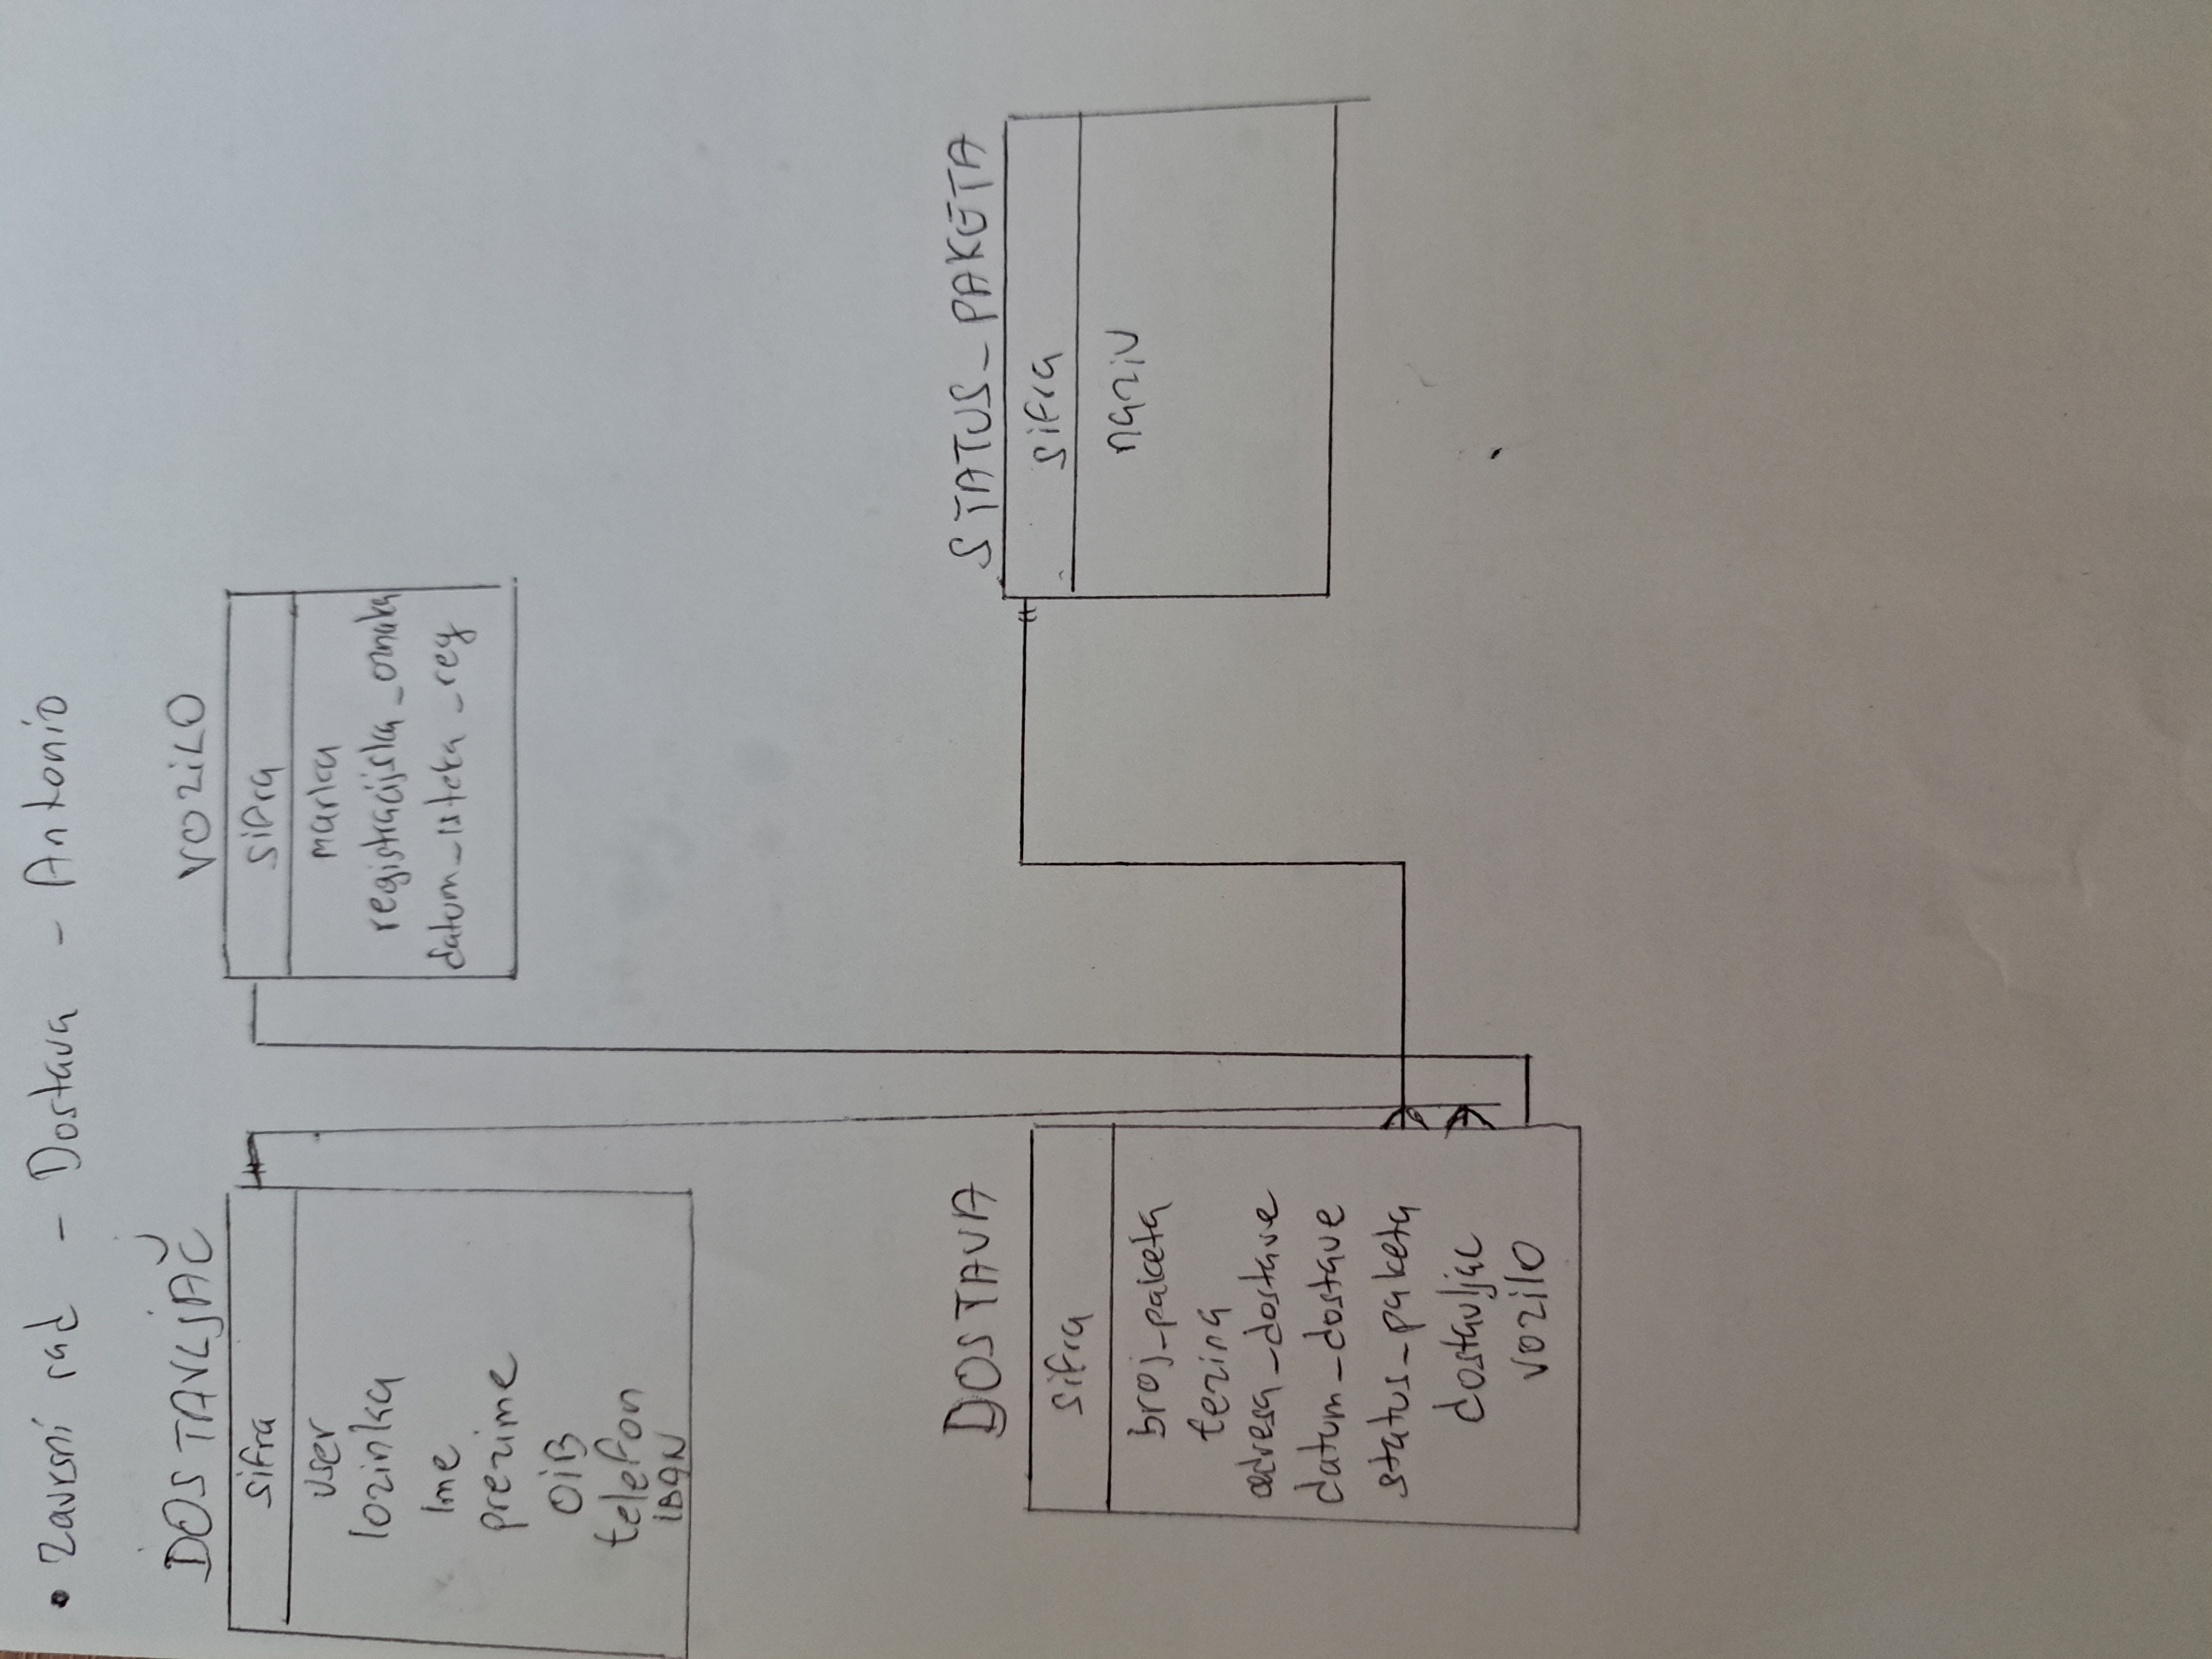 • Zavrsni rad - Dostava - Antonio
DOSTAVLJAČ
sifra
user
lozinka
Ime
prezime
OiB
telefon
IBAN
VOZiLO
sifra
marka
registracijska_oznaka
datum_isteka_reg
DOSTAVA
sifra
broj_paketa
tezina
adresa_dostave
datum_dostave
status_paketa
dostavljac
vozilo
STATUS_PAKETA
sifra
naziv